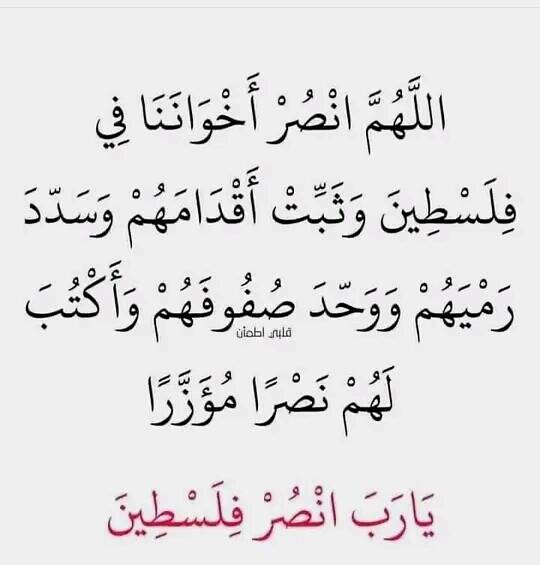 اللَّهُمَّ انْصُرْ أَخْوَانَنَا فِي
فِلَسْطِينَ وَثَبِّتْ أَقْدَامَهُمْ وَسَدّدَ
رَمْيَهُمْ وَوَحّدَ صُفُوفَهُمْ وَأَكْتُبَ
قلبي اطمأن
لَهُمْ نَصْرًا مُؤَزَّرًا
يَارَبَ انْصُرْ فِلَسْطِينَ